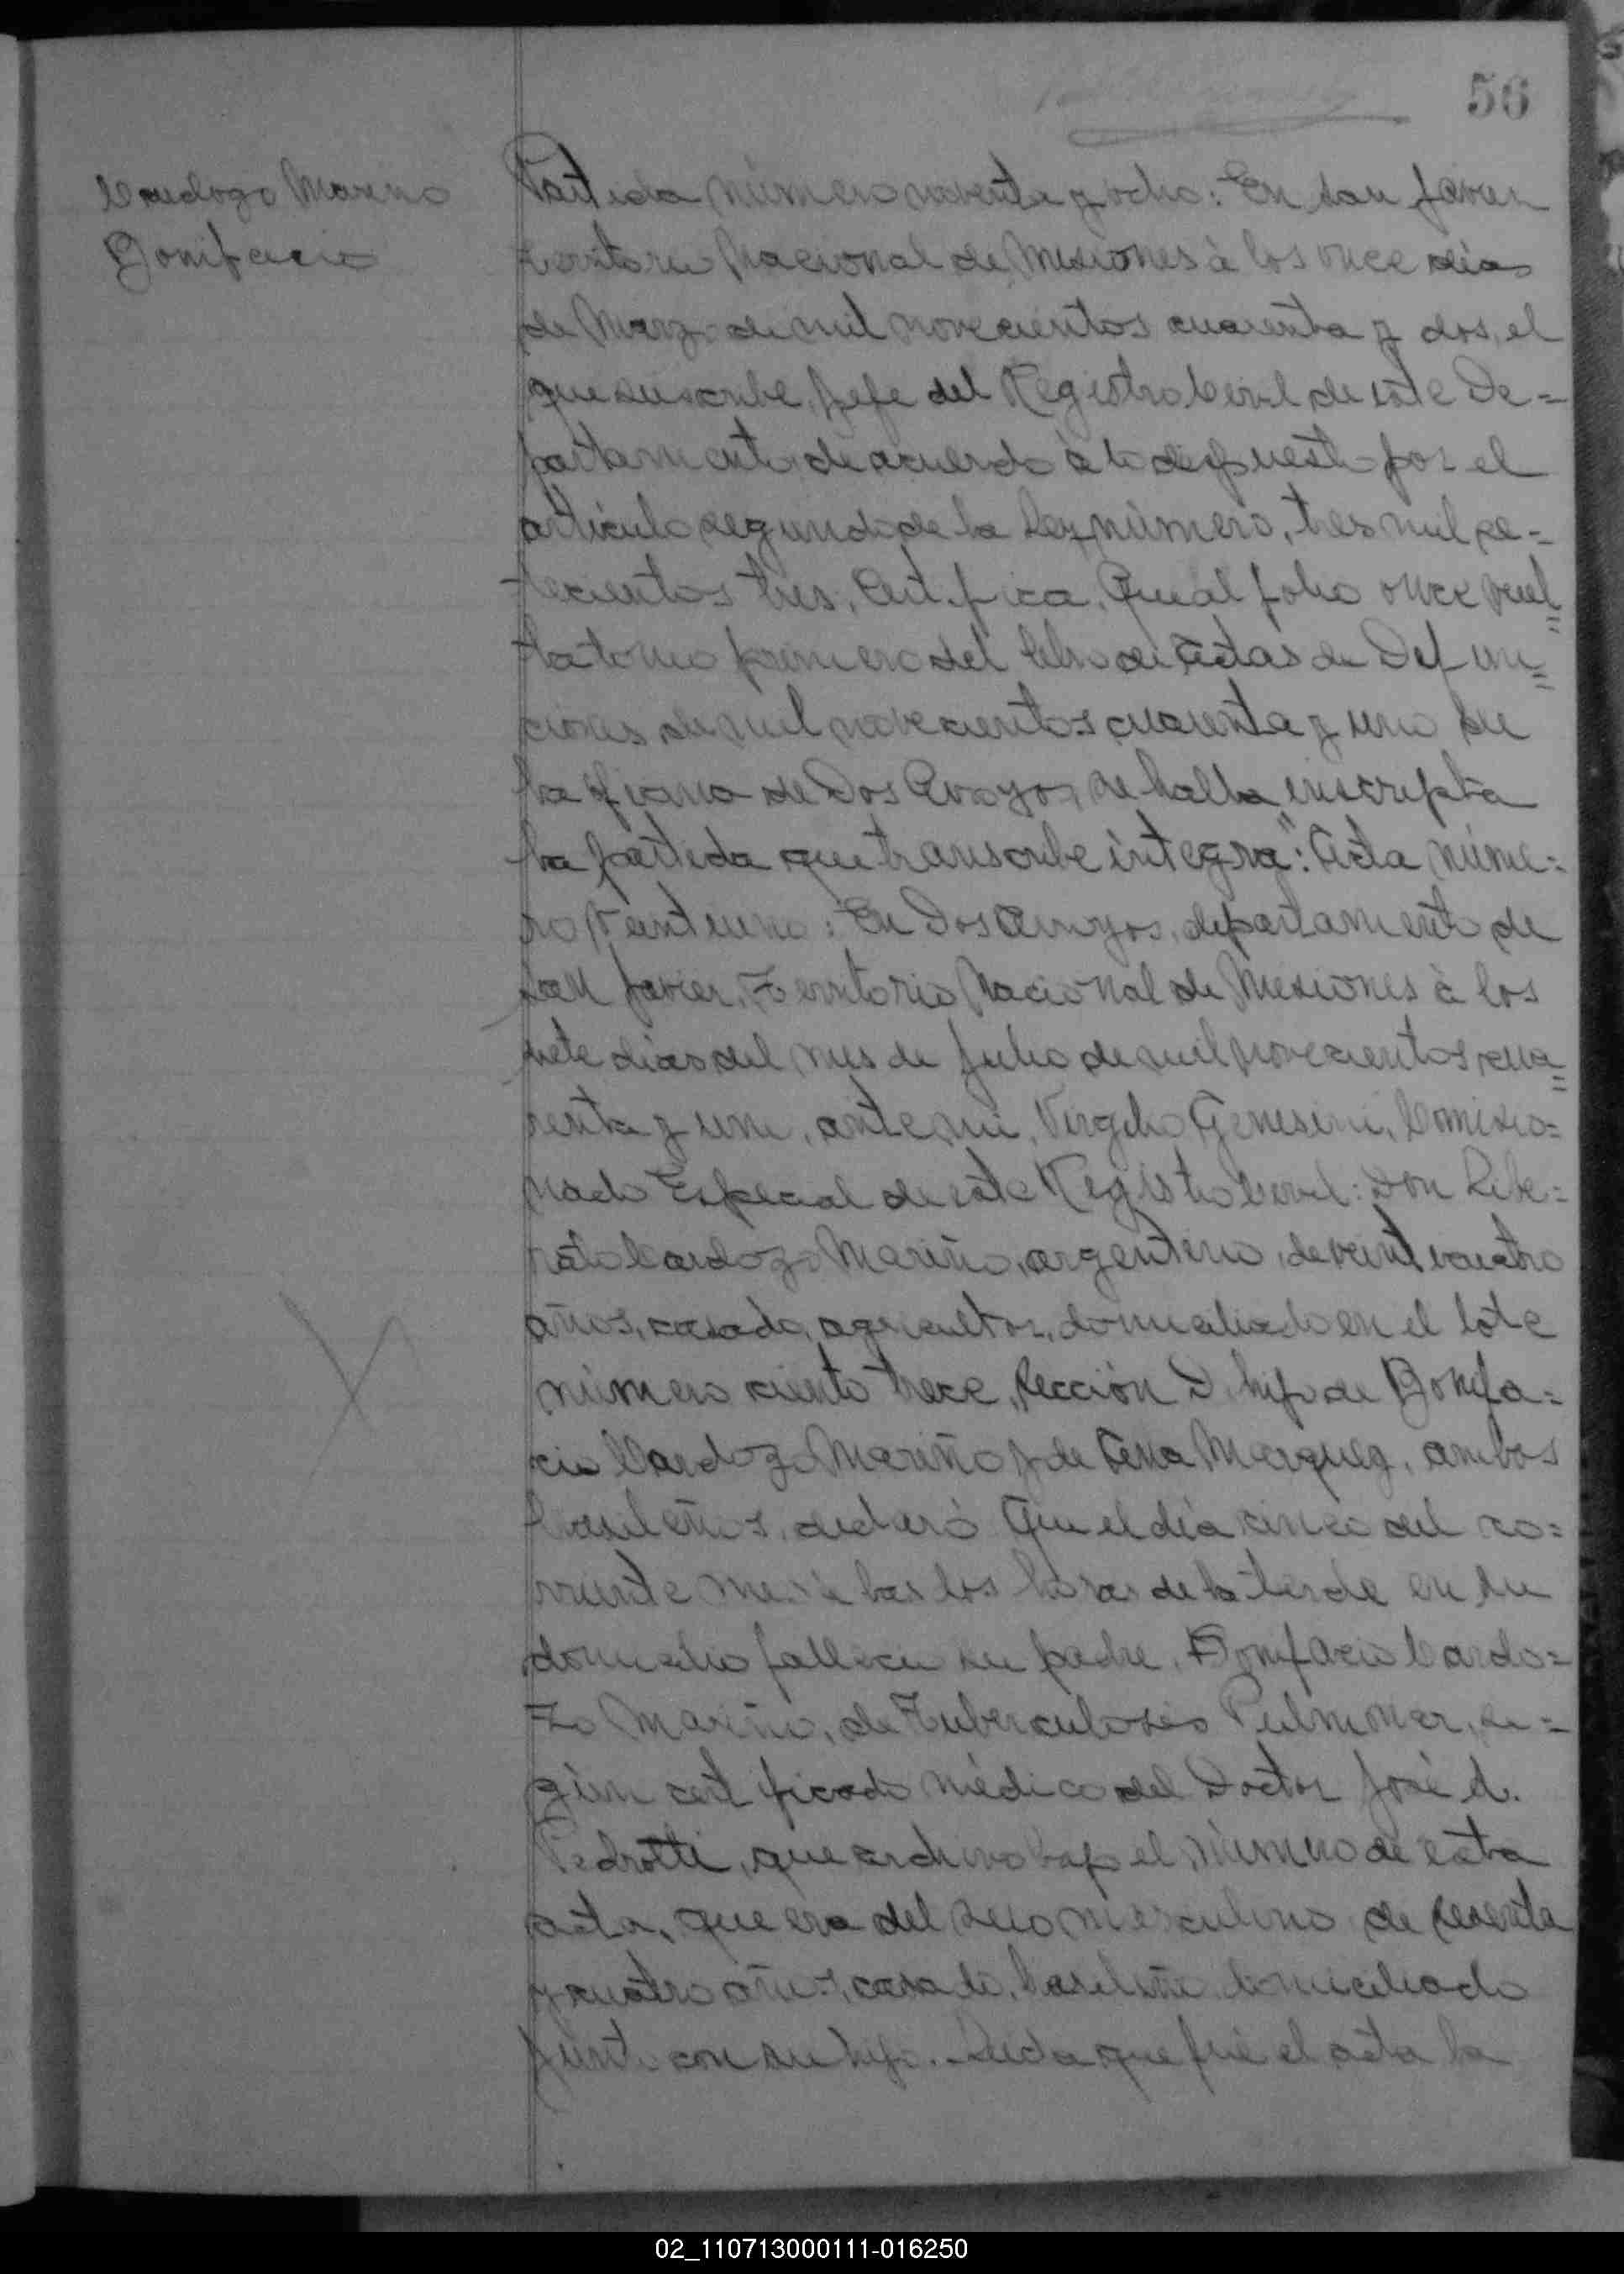 56
Cardozo Marino
Bonifacio
Partida número noventa y ocho: En San Javier
Territorio Nacional de Misiones à los once días
de Marzo de mil novecientos cuarenta y dos, el
que suscribe, Jefe del Registro Civil de este De=
partamento, de acuerdo à lo dispuesto por el
artículo segundo de la Ley número, tres mil se=
tecientos tres, Certifica, Que al folio once vuel=
ta tomo primero del libro de Actas de Defun=
ciones de mil novecientos cuarenta y uno de
la oficina de Dos Arroyos, se halla inscripta
la partida que transcribe íntegra": Acta núme=
ro Veintiuno: En Dos Arroyos, departamento de
San Javier, Territorio Nacional de Misiones à los
siete días del mes de Julio de mil novecientos cua=
renta y uno, ante mi, Virgilio Genesini, Comisio=
nado Especial de este Registro Civil: Don Libe=
rato Cardozo Mariño, argentino, de veinticuatro
años, casado, agricultor, domiciliado en el lote
número ciento trece, Sección D. hijo de Bonifa=
cio Cardozo Mariño y de Ana Marquez, ambos
brasileños, declaró Que el día cinco del co=
rriente mes à las dos horas de la tarde en su
domicilio falleció su padre, Bonifacio Cardo=
zo Mariño, de Tuberculosis Pulmonar, se=
gún certificado médico del Doctor José A.
Pedrotti, que archivo bajo el número de esta
acta, que era del sexo masculino de sesenta
y cuatro años, casado, brasileño domiciliado
junto con su hijo. Leida que fué el acta la
02_110713000111-016250